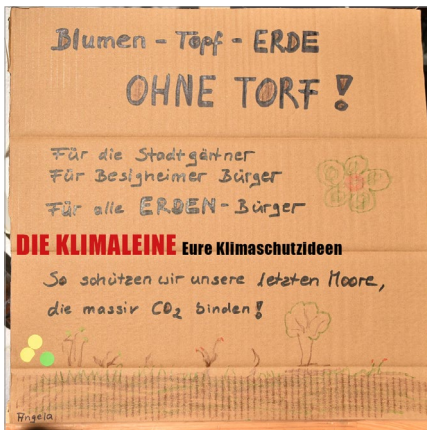 Blumen - Topf - ERDE
OHNE TORF!
Für die Stadtgärtner
Für Besigheimer Bürger
Für alle ERDEN - Bürger
DIE KLIMALEINE Eure Klimaschutzideen
So schützen wir unsere letzten Moore,
die massiv CO₂ binden!
Angela